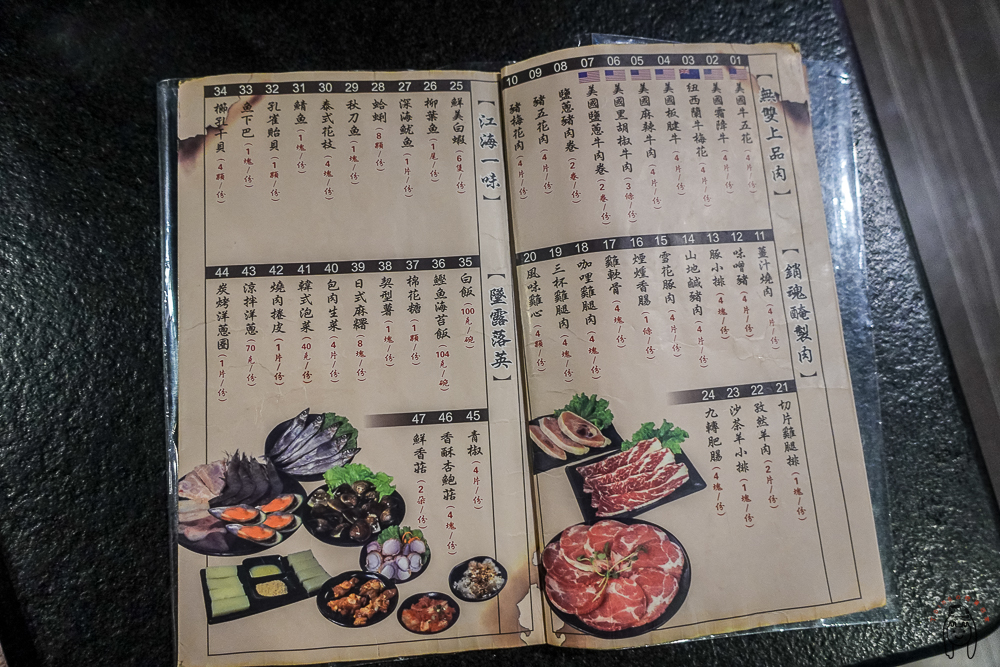 【無雙上品肉】
01 美國牛五花(4片/份)
02 美國霜降牛(4片/份)
03 紐西蘭牛梅花(4片/份)
04 美國板腱牛(4片/份)
05 美國麻辣牛肉(4片/份)
06 美國黑胡椒牛肉(3條/份)
07 美國鹽蔥牛肉卷(2卷/份)
08 鹽蔥豬肉卷(2卷/份)
09 豬五花肉(4片/份)
10 豬梅花肉(4片/份)
【銷魂醃製肉】
11 薑汁燒肉(4片/份)
12 味噌豬(4片/份)
13 豚小排(4塊/份)
14 山地鹹豬肉(4片/份)
15 雪花豚肉(4片/份)
16 煙燻香腸(1條/份)
17 雞軟骨(4塊/份)
18 咖哩雞腿肉(4塊/份)
19 三杯雞腿肉(4塊/份)
20 風味雞心(4顆/份)
21 切片雞腿排(1塊/份)
22 孜然羊肉(2片/份)
23 沙茶羊小排(1塊/份)
24 九轉肥腸(4塊/份)
【江海一味】
25 鮮美白蝦(6隻/份)
26 柳葉魚(1尾/份)
27 深海魷魚(1片/份)
28 蛤蜊(8顆/份)
29 秋刀魚(1塊/份)
30 泰式花枝(4塊/份)
31 鯖魚(1塊/份)
32 孔雀貽貝(1顆/份)
33 魚下巴(1塊/份)
34 櫛孔干貝(4顆/份)
【墜露落英】
35 白飯(100克/碗)
36 鰹魚海苔飯(104克/碗)
37 棉花糖(1顆/份)
38 契型薯(1塊/份)
39 日式麻糬(8塊/份)
40 包肉生菜(4片/份)
41 韓式泡菜(40克/份)
42 燒肉捲皮(1片/份)
43 涼拌洋蔥(70克/份)
44 炭烤洋蔥圈(1片/份)
45 青椒(4片/份)
46 香酥杏鮑菇(4塊/份)
47 鮮香菇(2朵/份)